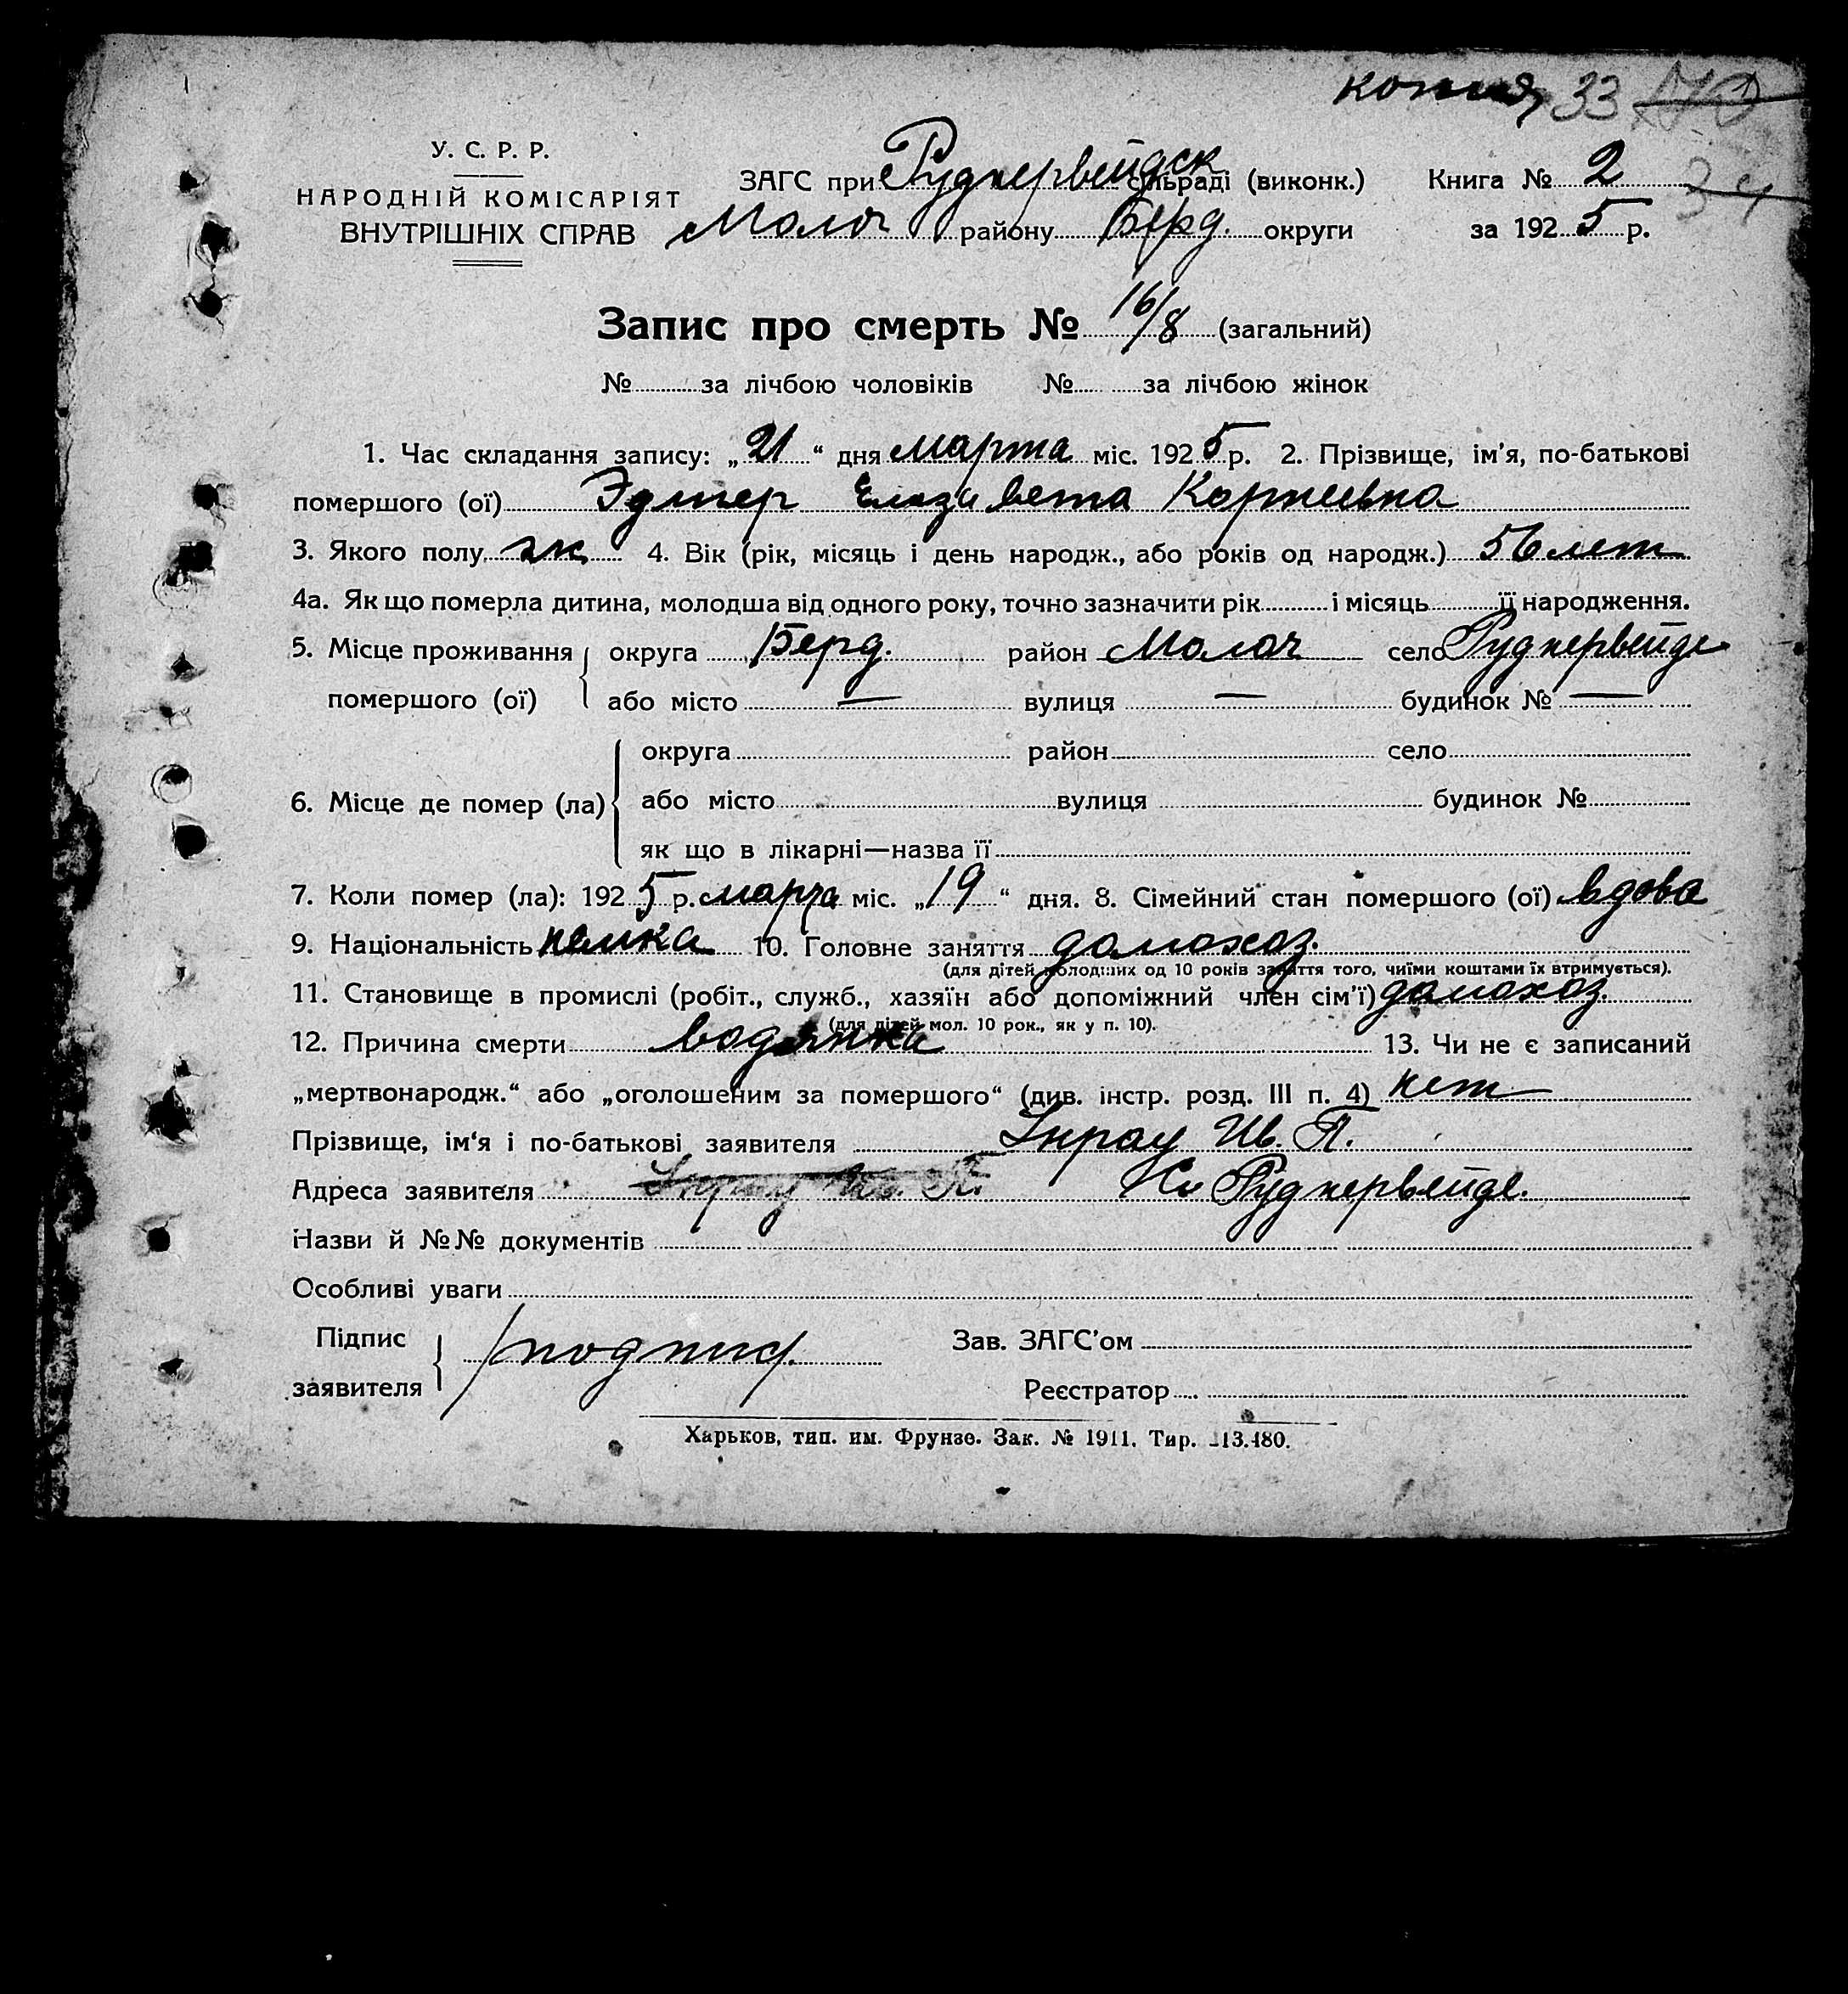 копия 33
У. С. Р. Р.
НАРОДНІЙ КОМІСАРІЯТ
ВНУТРІШНІХ СПРАВ
ЗАГС при Руднервейдск сільраді (виконк.) Книга № 2
34
Молоч району Берд. округи за 1925 р.
Запис про смерть № 16/8 (загальний)
№ за лічбою чоловіків № за лічбою жінок
1. Час складання запису: „21“ дня марта міс. 1925 р. 2. Прізвище, ім'я, по-батькові
помершого (ої) Эдигер Елизавета Корнеевна
3. Якого полу ж 4. Вік (рік, місяць і день народж., або років од народж.) 56 лет
4а. Як що померла дитина, молодша від одного року, точно зазначити рік і місяць її народження.
5. Місце проживання округа Берд. район Молоч село Руднервейде
помершого (ої) або місто — вулиця — будинок № —
округа район село
6. Місце де помер (ла) або місто вулиця будинок №
як що в лікарні—назва її
7. Коли помер (ла): 1925 р. марта міс. „19“ дня. 8. Сімейний стан помершого (ої) вдова
9. Національність немка 10. Головне заняття домохоз.
(для дітей молодших од 10 років заняття того, чиїми коштами їх втримується).
11. Становище в промислі (робіт., служб., хазяїн або допоміжний член сім'ї) домохоз.
(для дітей мол. 10 рок., як у п. 10).
12. Причина смерти водянка 13. Чи не є записаний
„мертвонародж.“ або „оголошеним за помершого“ (див. інстр. розд. III п. 4) нет
Прізвище, ім'я і по-батькові заявителя Унрау Ив. П.
Адреса заявителя Унрау Ив. П. Руднервейде.
Назви й №№ документів
Особливі уваги
Підпис
заявителя /подпис/.
Зав. ЗАГС'ом
Реєстратор
Харьков, тип. им. Фрунзе. Зак. № 1911. Тир. 113.480.